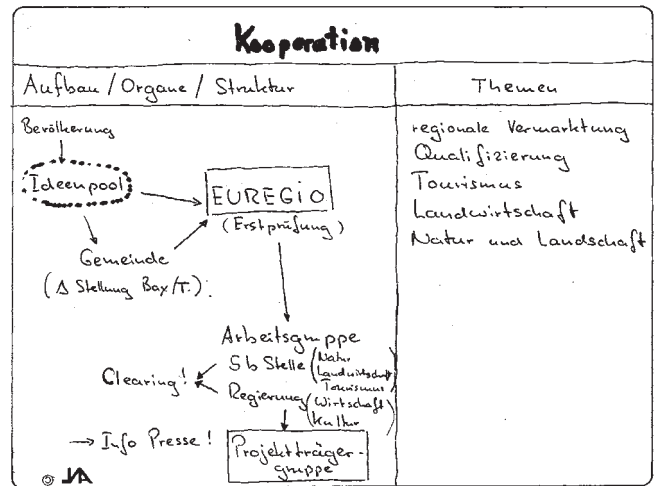 Kooperation
Aufbau / Organe / Struktur
Themen
Bevölkerung
Ideenpool
EUREGIO
(Erstprüfung)
Gemeinde
(Δ Stellung Bay/T.)
Arbeitsgruppe
Sb Stelle (Natur
Landwirtschaft
Tourismus)
Clearing!
Regierung (Wirtschaft
Kultur)
→ Info Presse!
Projektträger-
gruppe
regionale Vermarktung
Qualifizierung
Tourismus
Landwirtschaft
Natur und Landschaft
©